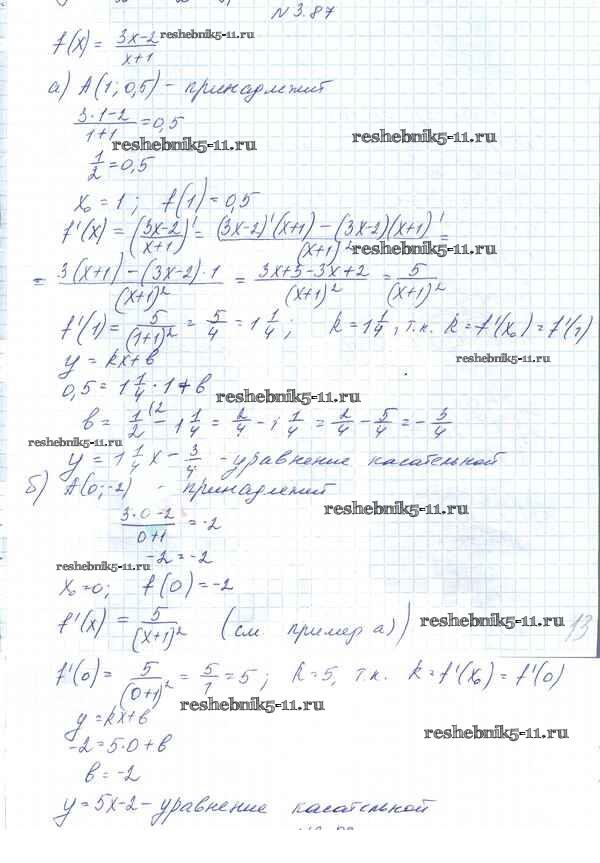 №3.87
f(x) = (3x-2)/(x+1) reshebnik5-11.ru
а) A(1; 0,5) - принадлежит
(3·1-2)/(1+1) = 0,5 reshebnik5-11.ru
reshebnik5-11.ru
1/2 = 0,5
x₀ = 1; f(1) = 0,5
f'(x) = ((3x-2)/(x+1))' = ((3x-2)'(x+1) - (3x-2)(x+1)')/(x+1)² = reshebnik5-11.ru
= (3(x+1) - (3x-2)·1)/(x+1)² = (3x+5-3x+2)/(x+1)² = 5/(x+1)²
f'(1) = 5/(1+1)² = 5/4 = 1 1/4; k = 1 1/4, т.к. k = f'(x₀) = f'(1)
y = kx+b reshebnik5-11.ru
0,5 = 1 1/4 · 1 + b reshebnik5-11.ru
b = 1/2 - 1 1/4 = 2/4 - 1 1/4 = 2/4 - 5/4 = -3/4
reshebnik5-11.ru
y = 1 1/4 x - 3/4 - уравнение касательной
б) A(0;-2) - принадлежит
(3·0-2)/(0+1) = -2 reshebnik5-11.ru
-2 = -2
reshebnik5-11.ru
x₀ = 0; f(0) = -2
f'(x) = 5/(x+1)² (см пример а)) reshebnik5-11.ru 13
f'(0) = 5/(0+1)² = 5/1 = 5; k = 5, т.к. k = f'(x₀) = f'(0)
reshebnik5-11.ru
y = kx+b reshebnik5-11.ru
-2 = 5·0+b
b = -2
y = 5x-2 - уравнение касательной